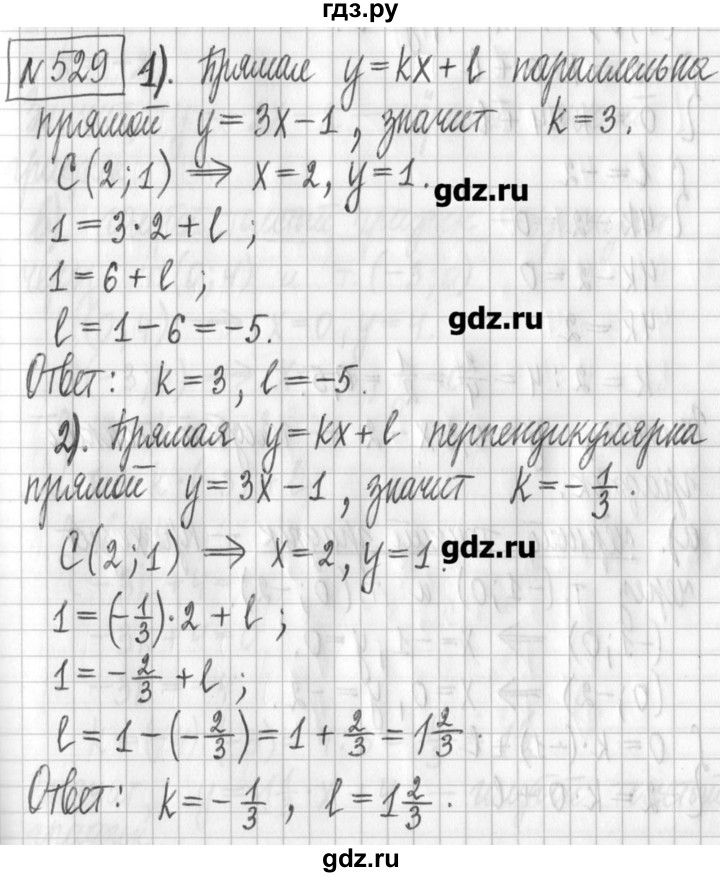 гдз.ру
№529 1). Прямая y=kx+l параллельна
прямой y=3x-1, значит k=3.
C(2;1) ⇒ x=2, y=1.
gdz.ru
1=3·2+l;
1=6+l;
gdz.ru
l=1-6=-5.
Ответ: k=3, l=-5.
2). Прямая y=kx+l перпендикулярна
прямой y=3x-1, значит k=-1/3.
C(2;1) ⇒ x=2, y=1.
gdz.ru
1=(-1/3)·2+l;
1=-2/3+l;
l=1-(-2/3)=1+2/3=1 2/3.
Ответ: k=-1/3, l=1 2/3.
gdz.ru